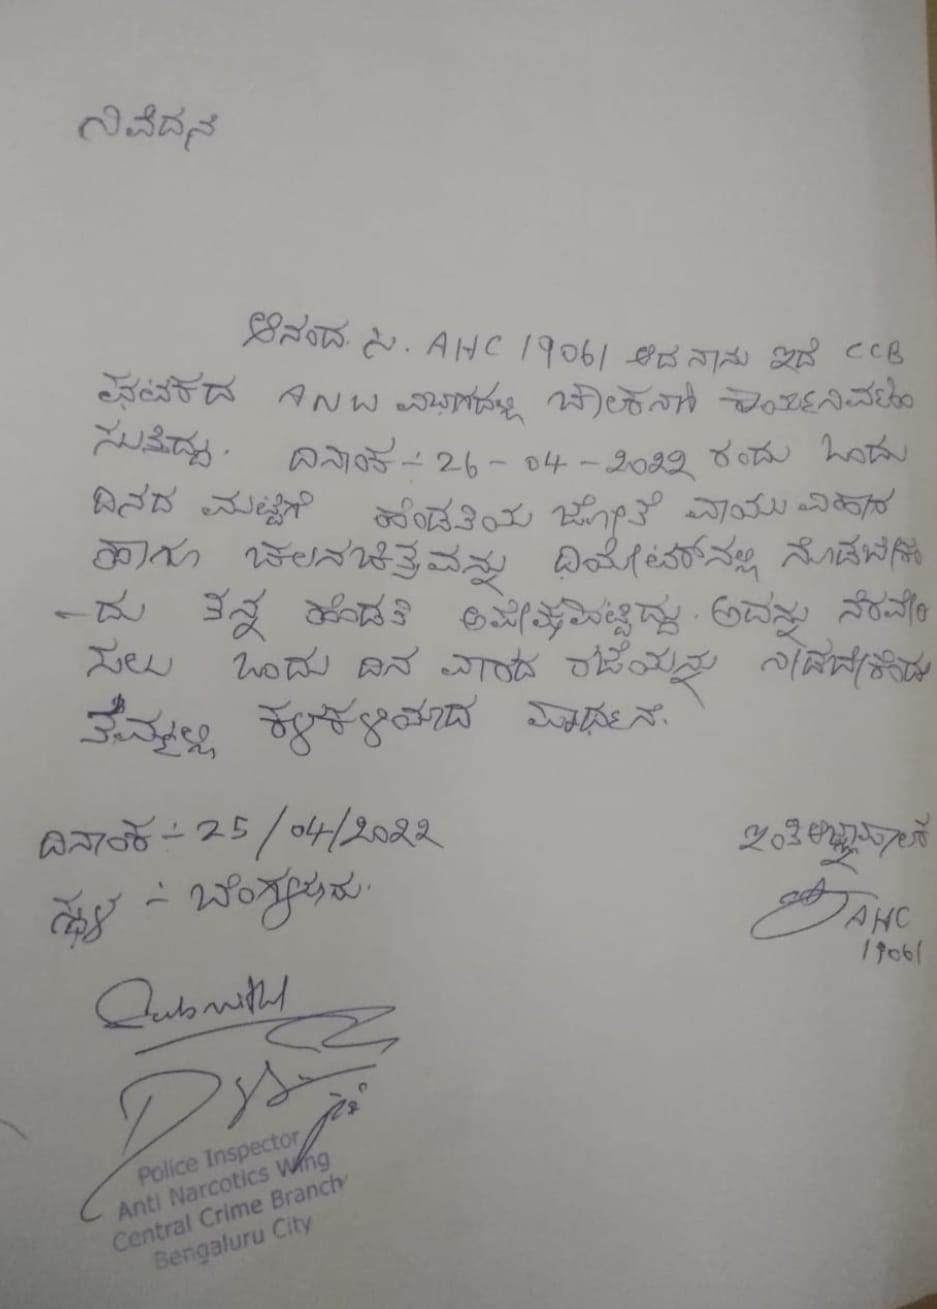 ನಿವೇದನೆ
ಆನಂದ. ಸಿ. AHC 19061 ಆದ ನಾನು ಇದೆ CCB
ಘಟಕದ ANW ವಿಭಾಗದಲ್ಲಿ ಚಾಲಕನಾಗಿ ಕಾರ್ಯನಿರ್ವಹಿ
ಸುತ್ತಿದ್ದು. ದಿನಾಂಕ :- 26-04-2022 ರಂದು ಒಂದು
ದಿನದ ಮಟ್ಟಿಗೆ ಹೆಂಡತಿಯ ಜೋತೆ ವಾಯು ವಿಹಾರ
ಹಾಗೂ ಚಲನಚಿತ್ರವನ್ನು ಥಿಯೇಟರ್‌ನಲ್ಲಿ ನೊಡಬೇಕೆಂ
-ದು ತನ್ನ ಹೆಂಡತಿ ಅಪೇಕ್ಷೆಪಟ್ಟಿದ್ದು. ಅದನ್ನು ನೆರವೇರಿ
ಸಲು ಒಂದು ದಿನ ವಾರದ ರಜೆಯನ್ನು ನೀಡಬೇಕೆಂದು
ತಮ್ಮಲ್ಲಿ ಕಳಕಳಿಯಾದ ಪ್ರಾರ್ಥನೆ.
ದಿನಾಂಕ :- 25/04/2022
ಇಂತಿ ಆಜ್ಞಾಪಾಲಕ
ಸ್ಥಳ :- ಬೆಂಗಳೂರು.
AHC
19061
Submitted
Police Inspector
Anti Narcotics Wing
Central Crime Branch
Bengaluru City